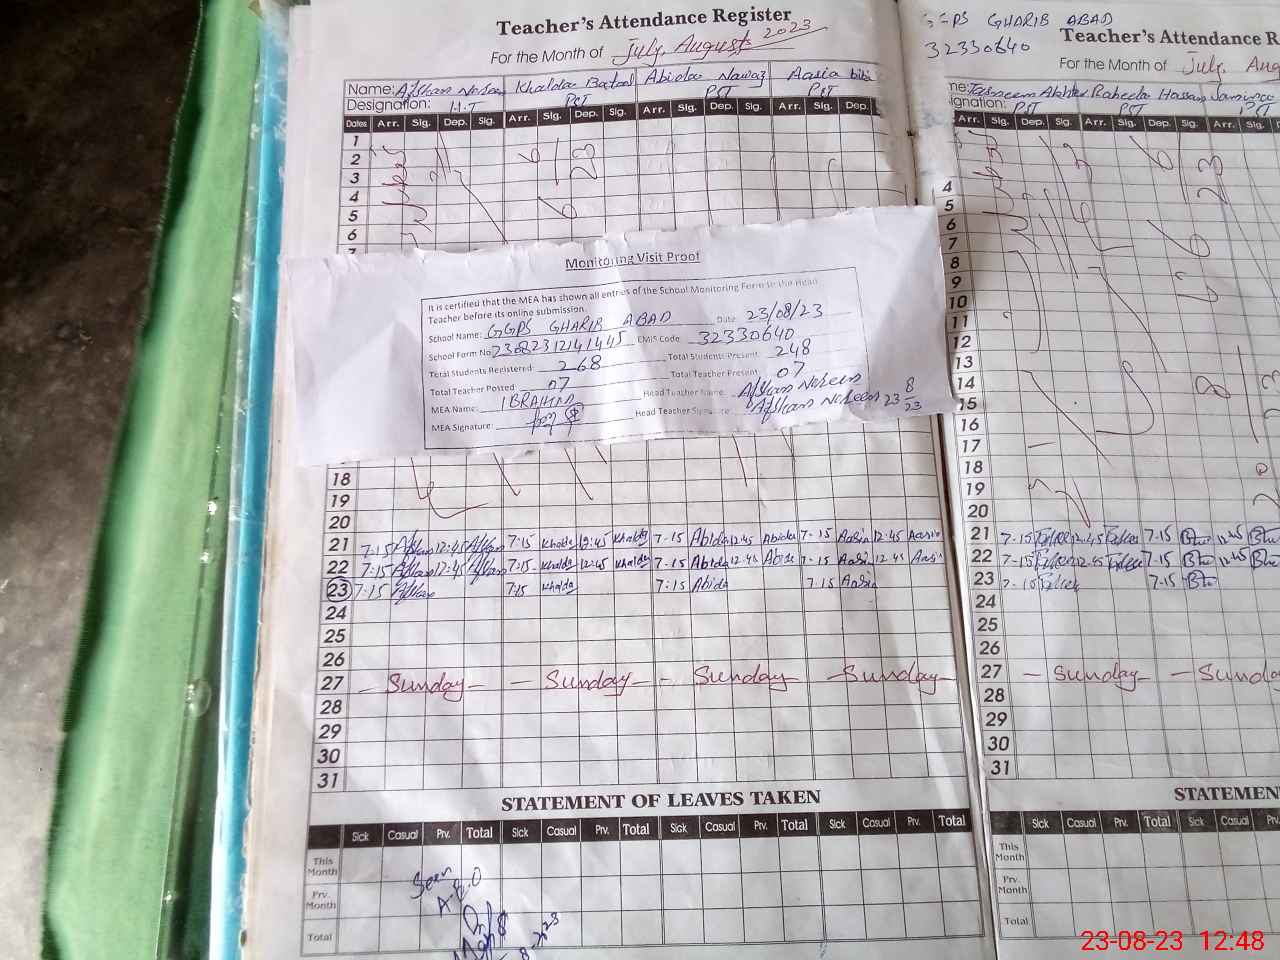 Teacher's Attendance Register
For the Month of July, August 2023
Name: Afshan Nasreen Khalda Batool Abida Nawaz Aasia bibi
Designation: H.T PST PST PST
Dates Arr. Sig. Dep. Sig. Arr. Sig. Dep. Sig. Arr. Sig. Dep. Sig. Arr. Sig. Dep.
1
2
3
4
5
6
7
Monitoring Visit Proof
It is certified that the MEA has shown all entries of the School Monitoring Form to the Head
Teacher before its online submission.
School Name: GGPS GHARIB ABAD Date: 23/08/23
School Form No 23082312141445 EMIS Code 32330640
Total Students Registered: 268 Total Students Present: 248
Total Teacher Posted: 07 Total Teacher Present: 07
MEA Name: IBRAHIM Head Teacher Name: Afshan Nasreen
MEA Signature: Head Teacher Signature: Afshan Nasreen 23 8/23
18
19
20
21 7-15 Afshan 12:45 Afshan 7:15 Khalda 12:45 Khalda 7-15 Abida 12:45 Abida 7-15 Aasia 12:45 Aasia
22 7:15 Afshan 12:45 Afshan 7:15 Khalda 12:45 Khalda 7:15 Abida 12:45 Abida 7-15 Aasia 12:45 Aasia
23 7-15 Afshan 7:15 Khalda 7:15 Abida 7:15 Aasia
24
25
26
27 - Sunday - - Sunday - - Sunday - - Sunday -
28
29
30
31
STATEMENT OF LEAVES TAKEN
Sick Casual Prv. Total Sick Casual Prv. Total Sick Casual Prv. Total Sick Casual Prv. Total
This Month
Prv. Month
Total
Seen
A.E.O
GGPS GHARIB ABAD
32330640
Teacher's Attendance R
For the Month of July, Aug
me: Tasneem Akhter Raheela Hassan
signation: PST PST PST
Arr. Sig. Dep. Sig. Arr. Sig. Dep. Sig. Arr. Sig.
4
5
6
7
8
9
10
11
12
13
14
15
16
17
18
19
20
21 7-15 12:45 7-15 12:45
22 7-15 12:45 7-15 12:45
23 7-15 7-15
24
25
26
27 - Sunday - - Sunda
28
29
30
31
STATEMEN
Sick Casual Prv. Total Sick Casual Prv.
This Month
Prv. Month
Total
23-08-23 12:48